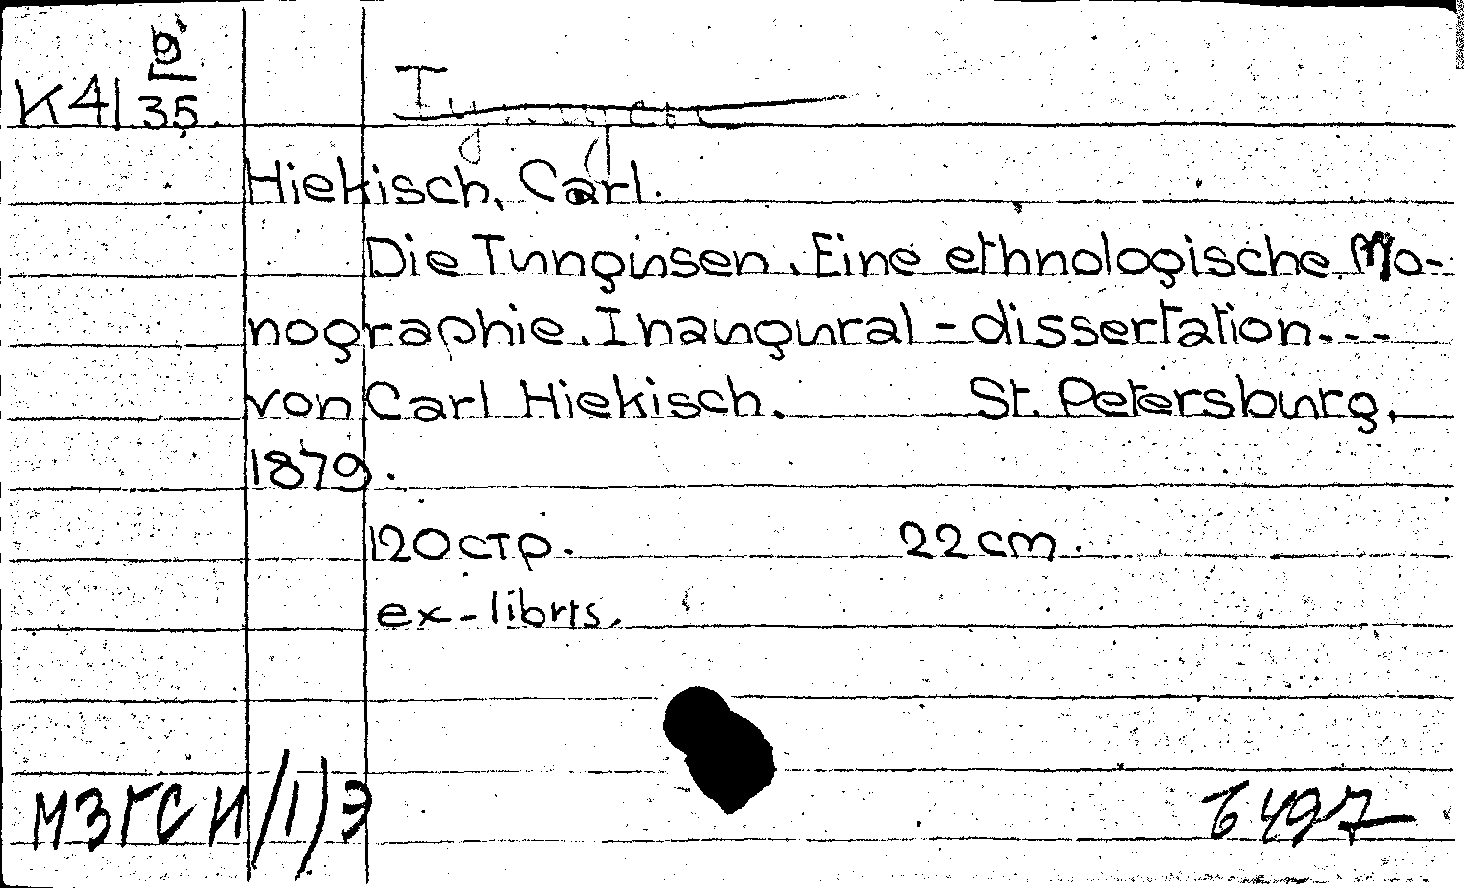 К41 9/35
Hiekisch, Carl.
Die Tungusen. Eine ethnologische Mo-
nographie. Inaugural-dissertation...
von Carl Hiekisch. St. Petersburg.
1879.
120 стр. 22 cm.
ex-libris.
МЗГСИ/1/Э 6497